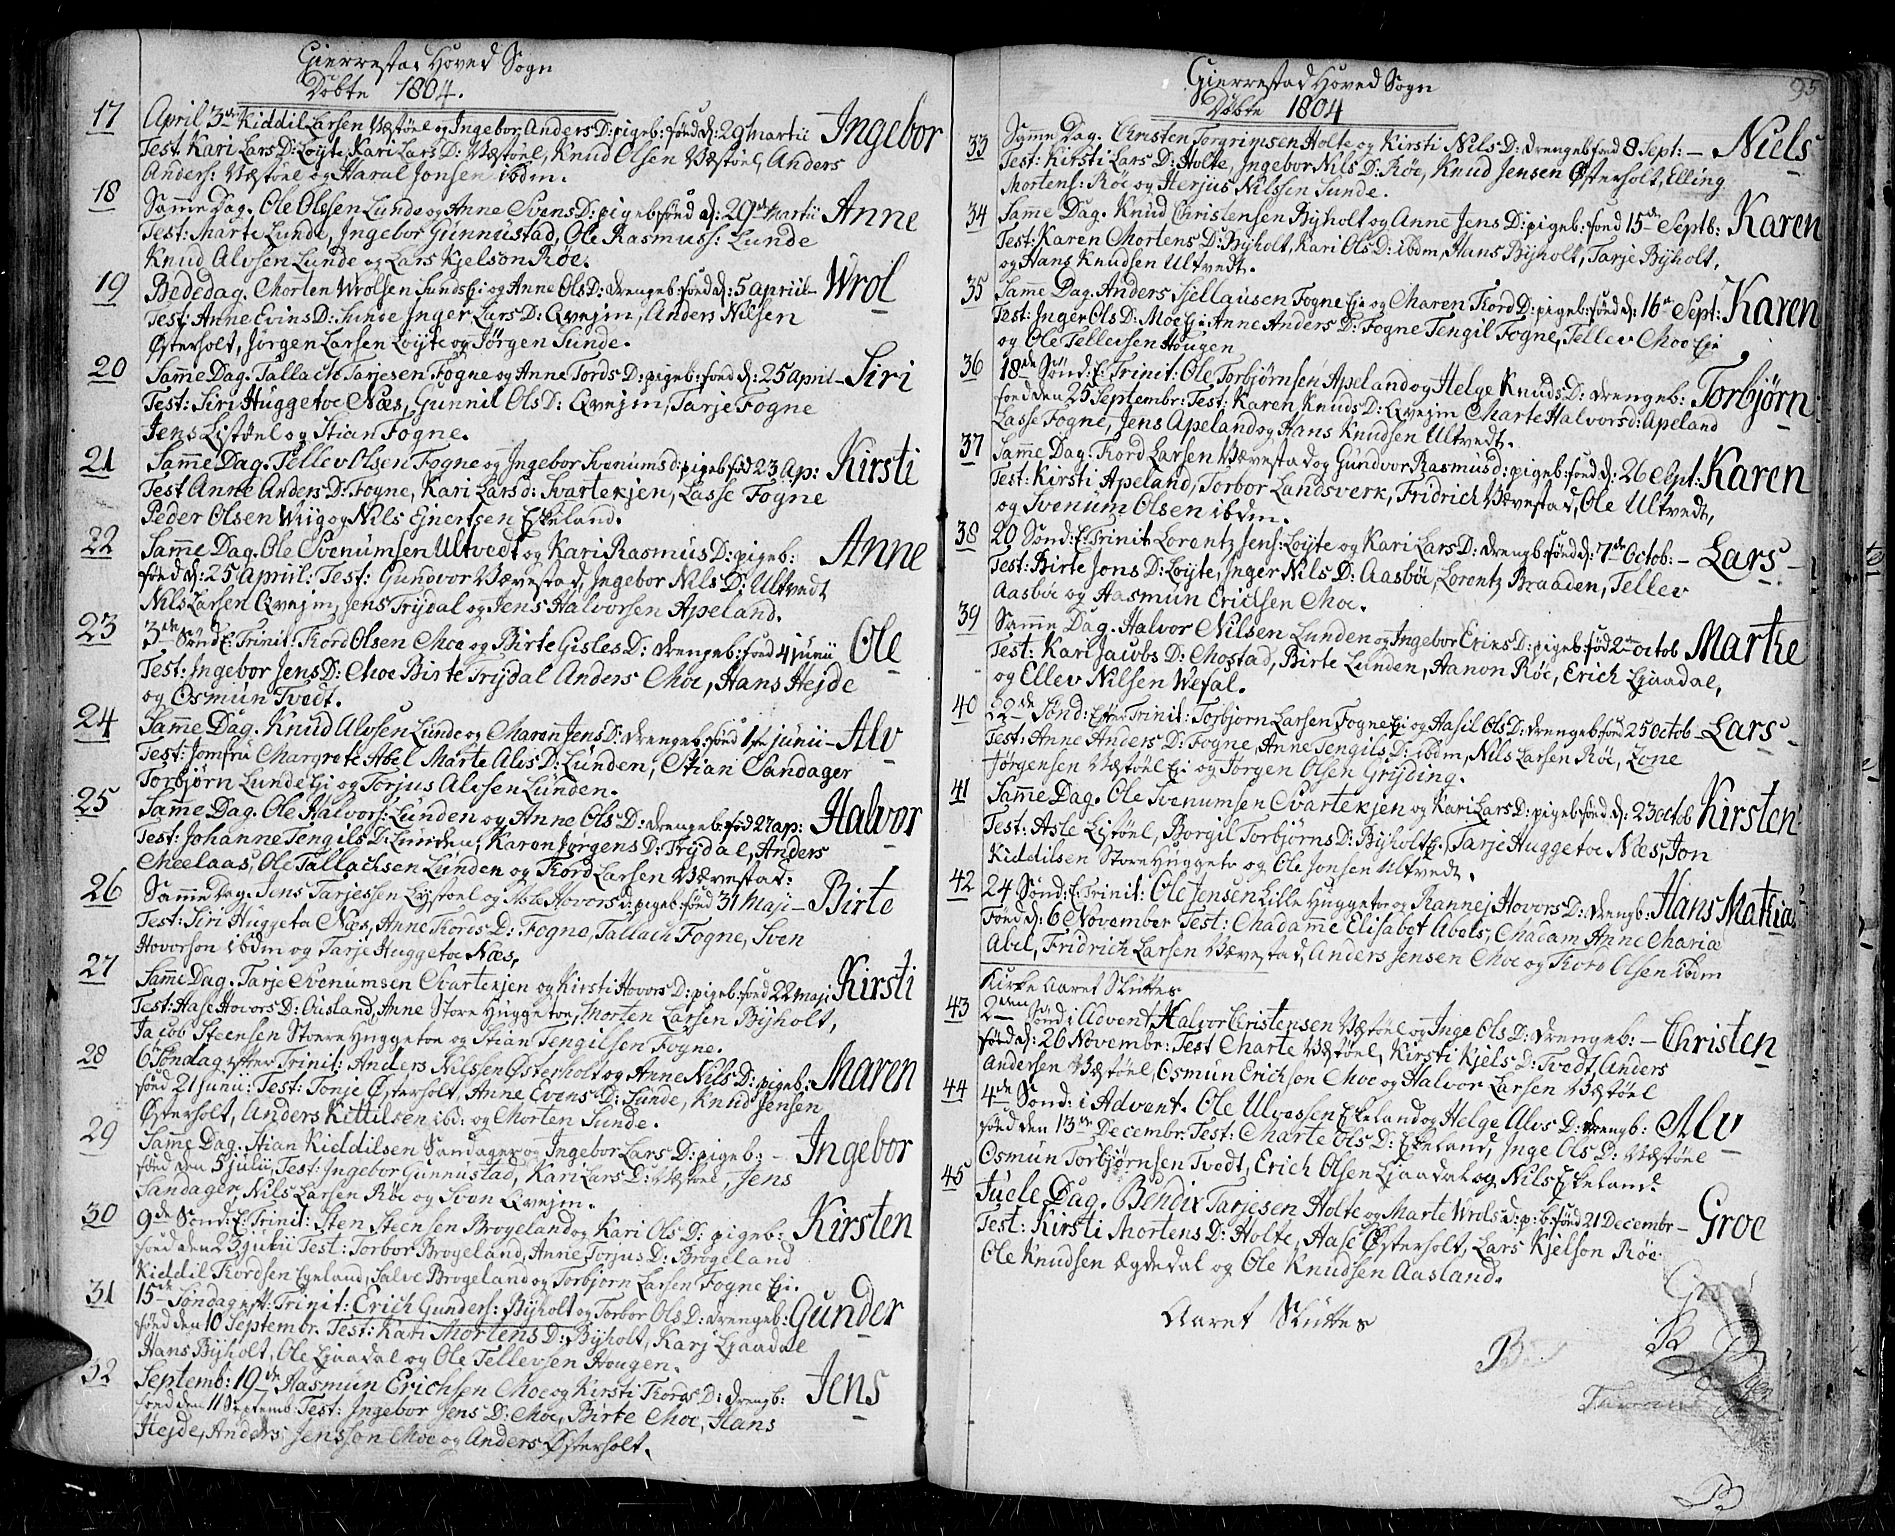 Gierrestad Hoved Sogn
Döbte 1804.
17 April 3de Kiddil Larsen Væstöel og Ingebor Anders D: pigeb: föed d: 29 Martii Ingebor
Test Kari Lars D: Löyte, Kari Lars D: Væstöel, Knud Olsen Væstöel, Anders
Anders: Væstöel og Haral Jonsen ibdm.
18 Samme Dag. Ole Olssen Lunde og Anne Svens D: pigeb: föed d: 29de Martii Anne
Test: Marte Lunde, Ingebor Gunnustad, Ole Rasmuss: Lunde
Knud Alvsen Lunde og Lars Kjelson Röe.
19 Bededag. Morten Wrolsen Sunds Ei og Anne Ols D: drengeb: föed d: 5 april - Wrol
Test: Anne Evins D: Sunde Inger Lars D: Qvejm, Anders Nilsen
Østerholt, Jörgen Larsen Löyte og Jörgen Sunde.
20 Samme Dag. Tallach Tarjesen Fogne og Anne Tords D: pigeb: föed d: 25 april - Siri
Test: Siri Huggetoe Næs, Gunnil Ols D: Qvejm, Tarje Fogne
Jens Listöel og Stian Fogne.
21 Samme Dag. Tellev Olsen Fogne og Ingebor Svenums d: pigeb: föd 23 Ap: Kirsti
Test Anne Anders D: Fogne, Kari Lars d: Svartekjen, Lasse Fogne
Peder Olsen Wiig og Nils Ejnertsen Eskeland.
22 Samme Dag. Ole Svenumsen Ultvedt og Kari Rasmus D: pigeb: Anne
föed d: 25 April: Test: Gundvor Vævestad, Ingebor Nils D: Ultvedt
Nils Larsen Qvejm, Jens Trÿdal og Jens Halvorsen Apeland.
23 3de Sönd E: Trinit: Tord Olsen Moe og Birte Gisles D: drengeb: föed 4 junii Ole
Test: Ingebor Jens D: Moe Birte Trÿdal Anders Moe, Hans Hejde
og Osmun Tvedt.
24 Samme Dag. Knud Alvsen Lunde og Maren Jens D: drengeb: föed 1ste junii - Alv
Test: Jomfru Margrete Abel Marte Alvs D: Lunden, Stian Sandager
Torbjörn Lunde Ei og Torjus Alvsen Lunden.
25 Samme Dag. Ole Halvors: Lunden og Anne Ols D: drengeb: föd 27 ap: Halvor
Test: Johanne Tengils D: Lunden, Karen Jörgens D: Trÿdal, Anders
Meelaas, Ole Tallachsen Lunden og Tord Larsen Vævestad:
26 Samme Dag. Jens Tarjessen Lÿstöel og Hovors D: pigeb: föed 31 Maji - Birte
Test: Siri Huggeto Næs, Anne Tords D: Fogne, Tallach Fogne, Sven
Hovorson ibdm og Tarje Huggetoe Næs.
27 Samme Dag. Tarje Svenumsen Svartekjen og Kirsti Hovors D: pigeb: föed 22 Maji Kirsti
Test: Aase Hovors D: Ausland, Anne Store Huggetoe, Morten Larsen Bÿholt,
Jacob Steensen Stoere Huggetoe og Stian Tengilsen Fogne.
28 6 Söndag efter Trinit: Anders Nilssen Østerholt og Anne Nils D: pigeb: Maren
föed 21 Junii: Test: Tonje Østerholt, Anne Evens D: Sunde, Knud Jensen
Østerholt, Anders Kittilsen ibd: og Morten Sunde.
29 Samme Dag. Stian Kiddilsen Sandager og Ingebor Lars D: pigeb: - Ingebor
föed den 5 julii, Test: Ingebor Gunnustad, Kari Lars D: Væstöel, Jens
Sandager, Nils Larsen Röe og Sven Qvejm.
30 9de Sönd: E: Trinit: Sten Steensen Brogeland og Kari Ols D: pigeb: Kirsten
föed den 23 julii Test: Torbor Brogeland, Anne Torjus D: Brogeland
Kiddil Tordsen Egeland, Salve Brogeland og Torbjörn Larsen Fogne Ei.
31 15de Söndag eft: Trinit: Erich Gunders: Bÿholt og Torbor Ols D: drengeb: Gunder
föed den 10 Septembr. Test: Kari Mortens D: Bÿholt, Karj Ljaadal
Hans Bÿholt, Ole Ljaadal og Ole Tellevsen Hougen.
32 Septemb: 19de Aasmun Erichsen Moe og Kirsti Tords D: drengb: Jens
föed den 11 Septemb. Test: Ingebor Jens D: Moe, Birte Moe, Hans
Hejde, Anders Jensson Moe og Anders Østerholt.
95
Gierrestad Hoved Sogn
Döbte 1804
33 Samme Dag. Christen Torgrimsen Holte og Kirsti Nils D: drengeb: föed 8 Sept: - Niels
Test: Kirsti Lars D: Holte, Ingebor Nils D: Röe, Knud Jensen Østerholt, Elling
Mortens: Röe og Herjus Nilssen Sunde.
34 Same Dag. Knud Christensen Bÿholt og Anne Jens D: pigeb: föed 15de Septb: Karen
Test: Karen Mortens D: Bÿholt, Kari Ols D: ibdm, Hans Bÿholt, Tarje Bÿholt,
og Hans Knudsen Ultvedt.
35 Samme Dag Anders Sjellausen Fogne Eje og Maren Tord D: pigeb: föed d: 16de Sept: Karen
Test: Inger Ols D: Moe Ei, Anne Anders D: Fogne Tengil Fogne, Tellev Moe Eje
og Ole Tellevsen Hougen
36 18de Sönd: E: Trinit: Ole Torbjørnsen Apeland og Helge Knuds D: drengeb: Torbjørn
föed den 25 Septembr: Test: Karen Knuds D: Qvejm Marte Halvors d: Apeland
Lasse Fogne, Jens Apeland og Hans Knudsen Ultvedt.
37 Samme Dag. Tord Larsen Vævestad og Gundvor Rasmus d: pigeb: föed d: 26 Sept: Karen
Test: Kirsti Apeland, Torbor Landsverk, Fridrich Vævestad, Ole Ultvedt,
og Svenum Olsen ibdm.
38 20 Sönd: E: Trinit. Lorentz Jens: Löyte og Kari Lars D: drengb: föed d: 7de Octob: - Lars -
Test: Birte Jons D: Löyte, Inger Nils D: Aasböe, Lorentz Braaden, Tellev
Aasböe og Aasmun Erichsen Moe.
39 Samme Dag. Halvor Nilsen Lunden og Ingebor Erics D: pigeb: föd 2den Octob Marthe
Test: Kari Jacobs D: Mostad, Birte Lunden, Aanon Röe, Erich Ljaadal,
og Ellev Nilsen Wefal.
40 22de Sönd: Efter Trinit: Torbjorn Larsen Fogne Ei og Aasil Ols D: drengeb: föed 25 Octob - Lars -
Test: Anne Anders D: Fogne, Anne Tengils D: ibdm, Nils Larsen Röe, Zone
Jörgensen Væstöel Ei og Jörgen Olsen Grÿding.
41 Samme Dag. Ole Svenumsen Svartekjen og Kari Lars D: pigeb: föed d: 23 Octob Kirsten
Test: Asle Listöel, Borgil Torbjörns D: Bÿholt E., Tarje Huggetoe Næs, Jon
Kiddilsen Store Huggeto og Ole Jonsen Ultvedt.
42 24 Sönd: E: Trinit: Ole Jensen Lille Huggetoe og Rannej Hovors D: drengb: Hans Mathias
Föed d: 6 November Test: Madamme Elisabet Abels, Madam Anne Mariæ
Abel, Fridrich Larsen Vævestad, Anders Jensen Moe og Tord Olsen ibdm
Kirke Aaret Sluttes
43 2den Sönd i Advent, Halvor Christensen Væstöel og Inge Ols D: drengeb: - Christen
föed d: 26 Novembr: Test Marte Væstöel, Kirsti Kjels D: Tvedt, Anders
Andersen Væstöel, Osmun Erichson Moe og Halvor Larsen Væstöel
44 4de Sönd: i Advent. Ole Ulvessen Eskeland og Helge Alvs D: drengb: Alv
föed den 13de Decembr. Test: Marte Ols D: Eskeland, Inge Ols D: Væstöel
Osmun Torbjørnsen Tvedt, Erich Olsen Ljaadal og Nils Eskeland
45 Juele Dag. Bendix Tarjesen Holte og Marte Wrols d: p: b: föed 21 Decembr - Groe
Test: Kirsti Mortens D: Holte, Aase Østerholt, Lars Kjelson Röe
Ole Knudsen Ægdedal og Ole Knudsen Aasland.
Aaret Sluttes